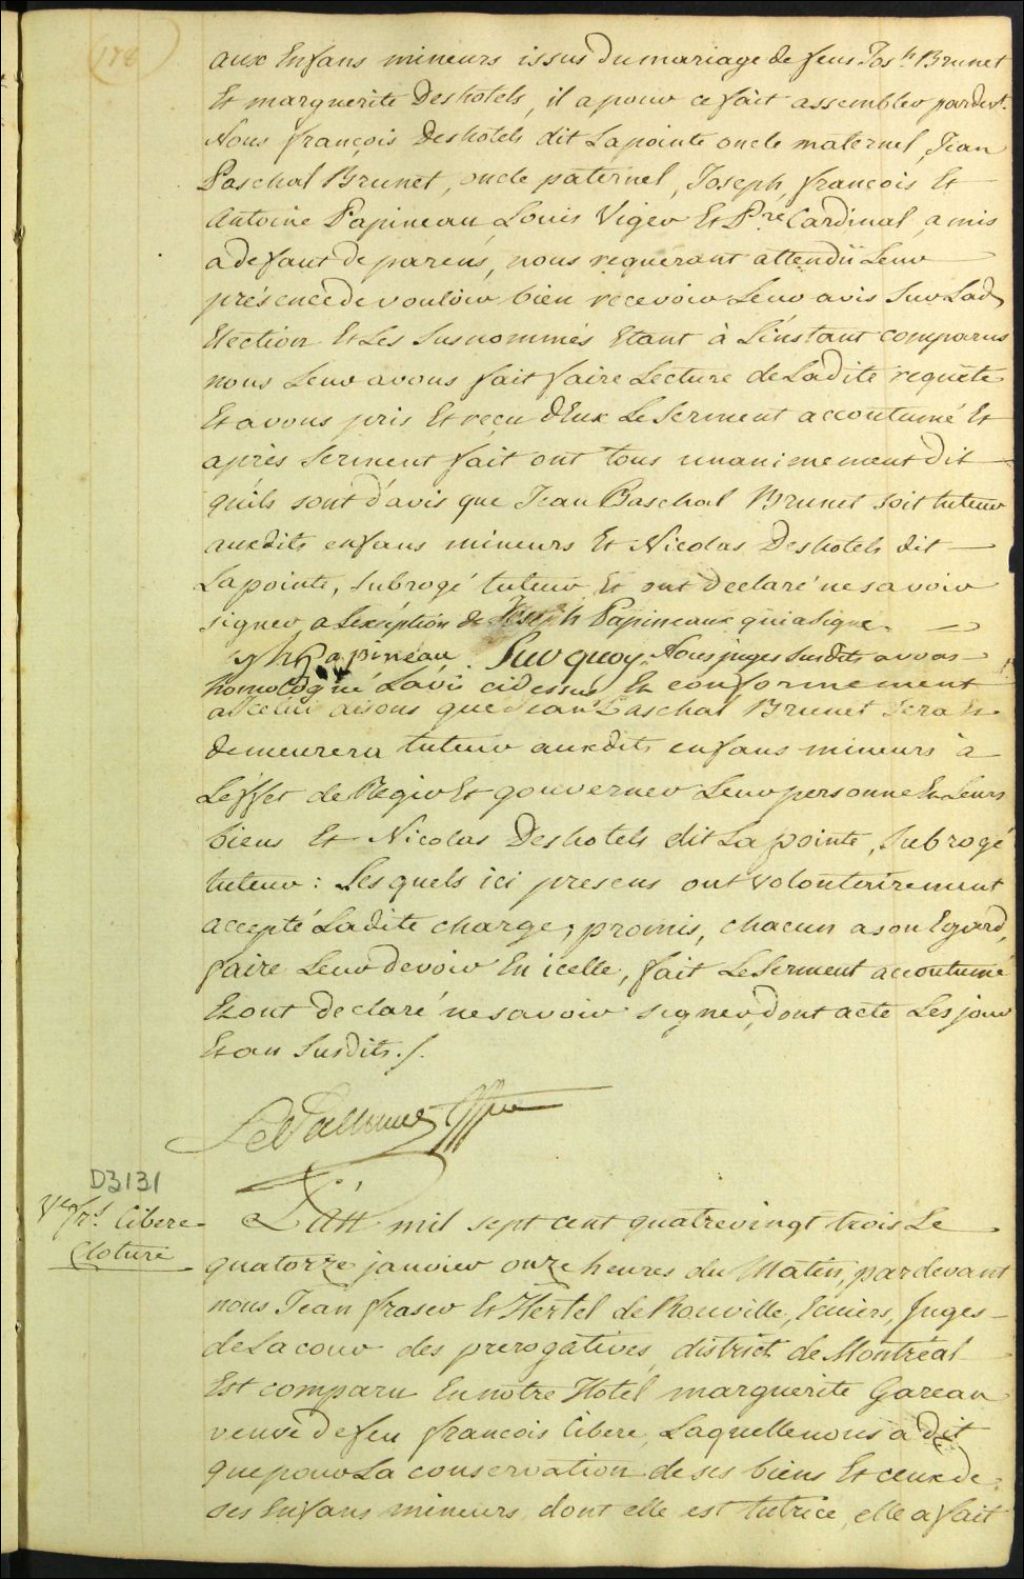 (178)
aux Enfans mineurs issus Du mariage de feus Jos.h Brunet
Et marguerite Deshotels, il a pour ce fait assembler pardevt.
Nous françois Deshotels dit Lapointe oncle maternel, Jean
Paschal Brunet, oncle paternel, Joseph, françois Et
Antoine Papineau, Louis Viger Et P.re Cardinal, amis
a defaut de parens, nous requerant attendü Leur
présence de vouloir bien recevoir Leur avis Sur Lad
Election Et Les Susnommés Etant à L'instant comparus
nous Leur avons fait faire Lecture de Ladite requête
Et avons pris Et reçu d'Eux Le Serment accoutumé Et
après Serment fait ont tous unanimement Dit
qu'ils sont d'avis que Jean Paschal Brunet soit tuteur
auxdits enfans mineurs Et Nicolas Deshotels dit
Lapointe, Subrogé tuteur Et ont Declaré ne savoir
signer a L'exséption de Joseph Papineaux qui a signé.
Papineau. Sur quoy, Nous juges Susdits avons
homologué L'avis cidessus Et conformement
a celui disons que Jean Paschal Brunet Sera Et
demeurera tuteur auxdits enfans mineurs à
L'éffet de Régir Et gouverner Leur personne Et Leurs
biens Et Nicolas Deshotels dit Lapointe, Subrogé
tuteur : Les quels ici presens ont volontairement
accepté Ladite charge, promis, chacun a son Egard,
faire Leur Devoir En icelle, fait Le Serment accoutumé
Et ont Declaré ne savoir signer, dont acte Les jour
Et an Susdits./.
D3131
Ve. frs. Cibere
Cloture
L'an mil sept cent quatrevingt trois Le
quatorze janvier onze heures du Matin, pardevant
nous Jean fraser Et Hertel de Rouville, Ecuiers, Juges
de La cour des prerogatives, district de Montréal
Est comparu En notre Hotel marguerite Gareau
veuve De feu françois Cibere, Laquelle nous a dit
que pour La conservation de ses biens Et ceux de
ses Enfans mineurs, dont elle est tutrice, elle a fait